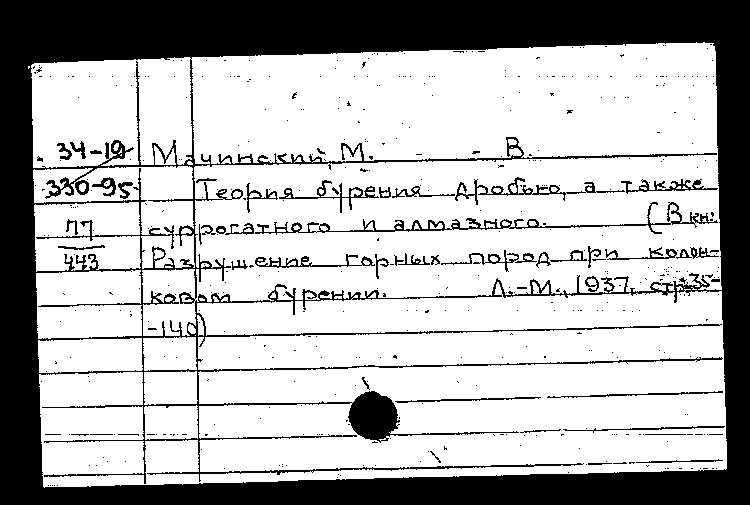 34-19 Мачинский, М. - - В.
330-95 Теория бурения дробью, а также
П7 суррогатного и алмазного. (В кн:
443 Разрушение горных пород при колон-
ковом бурении. Л.-М., 1937, стр. 35-
-140)